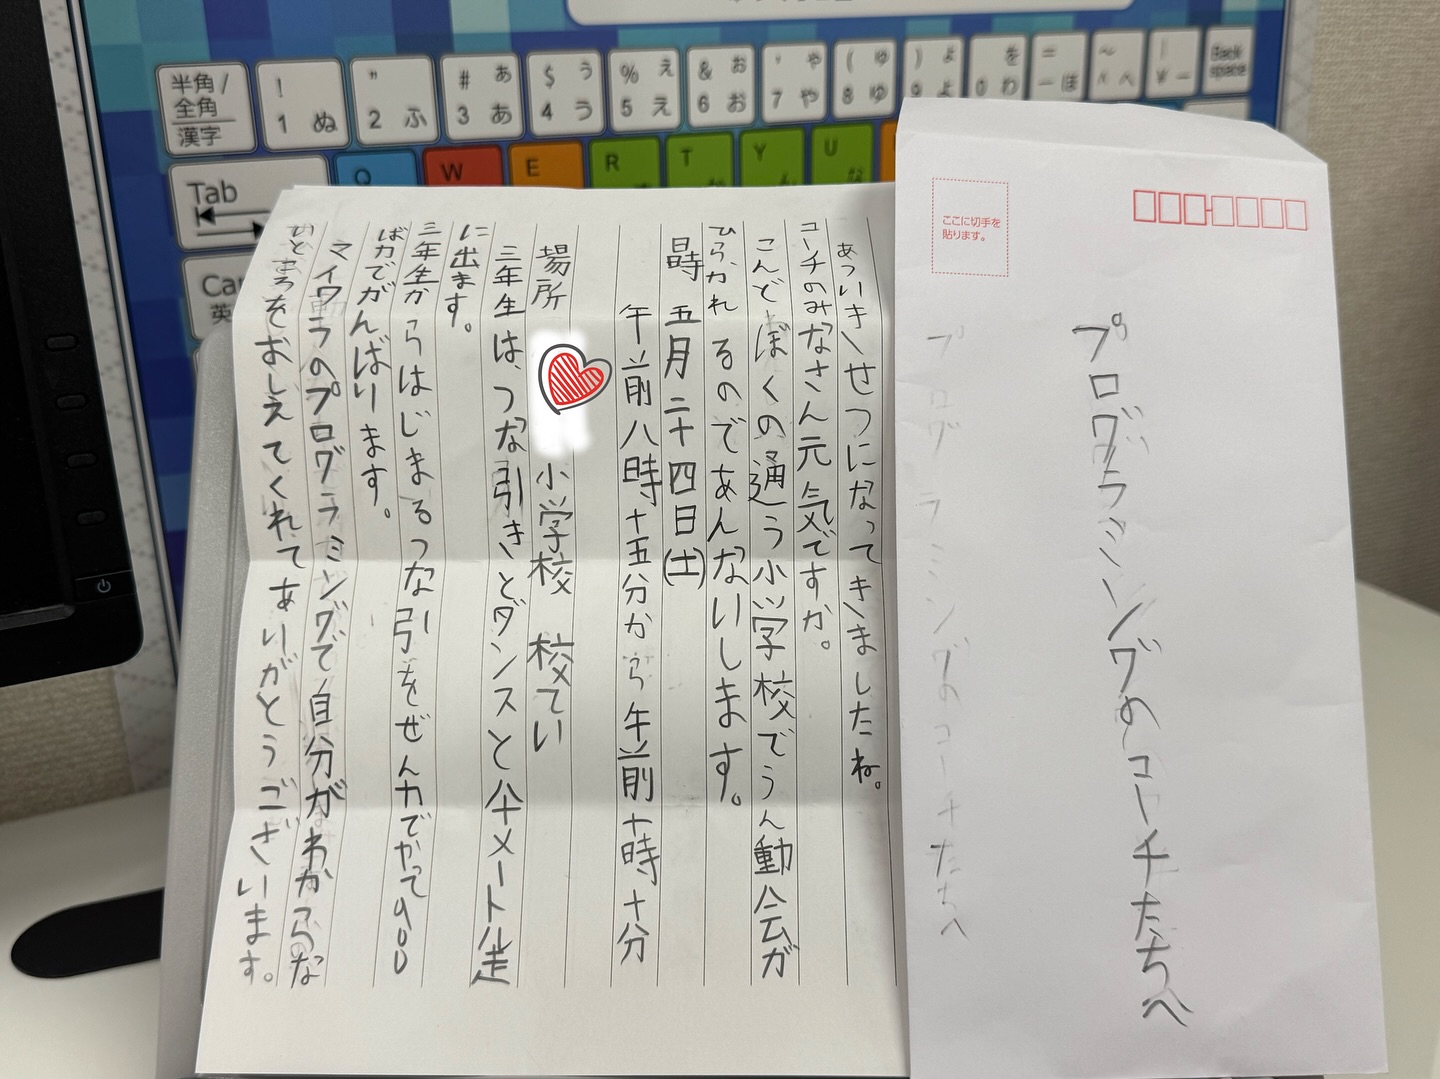 半角/
全角
漢字
! 1 ぬ
" 2 ふ
# あ 3 あ
$ う 4 う
% え 5 え
& お 6 お
' や 7 や
( ゆ 8 ゆ
) よ 9 よ
を 0 わ
= - ほ
~ ^ へ
| ¥ ー
Back space
Tab
Q
W
E
R
T
Y
U
Ca
英
あついきせつになってきましたね。
コーチのみなさん元気ですか。
こんどぼくの通う小学校でうん動会が
ひらかれるのであんないします。
時 五月二十四日(土)
午前八時十五分から午前十時十分
場所 小学校 校てい
三年生は、つな引きとダンスと
メートル走
に出ます。
三年生からはじまるつな引をぜん力でやって
ば力でがんばります。
マイクラのプログラミングで自分がわからな
いところをおしえてくれてありがとうございます。
ここに切手を
貼ります。
プログラミングのコーチたちへ
プログラミングのコーチたちへ